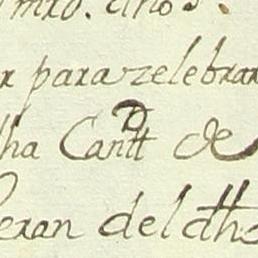 mro. año
r para zelebrar
ha Cantd de
eran del dho